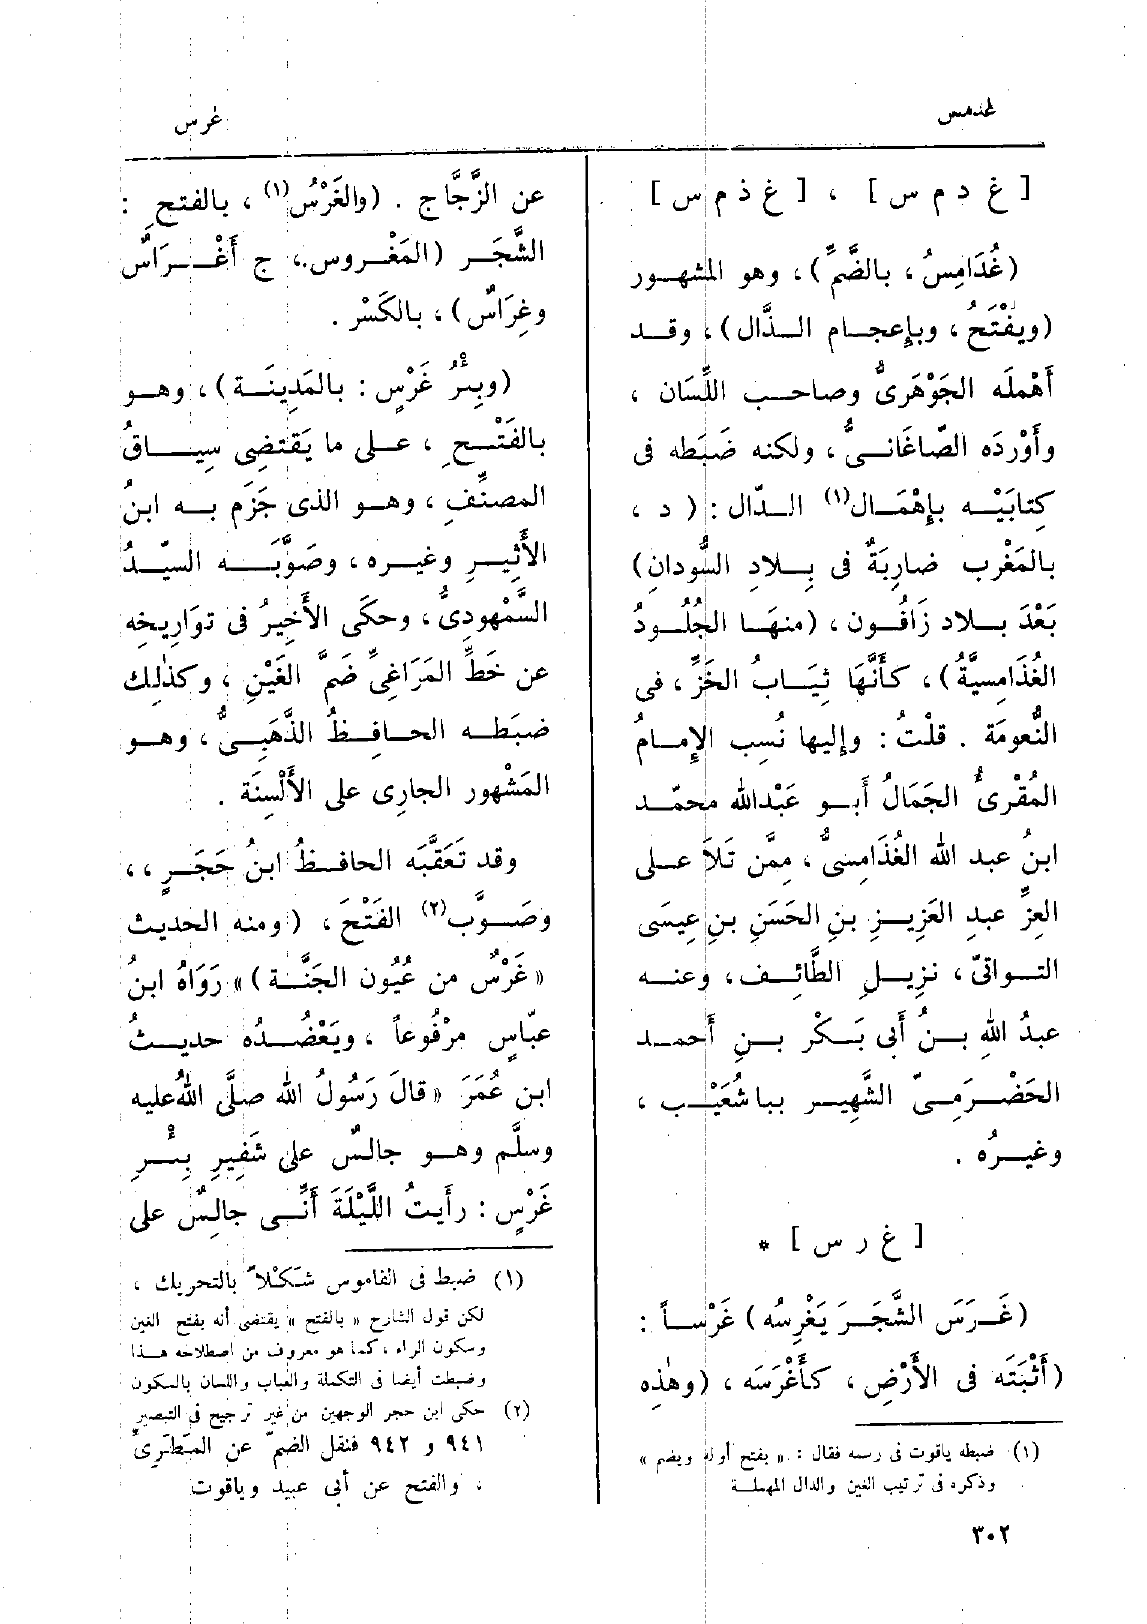 غدمس
غرس
[ غ د م س ] ، [ غ ذ م س ]
(غُدَامِسُ ، بالضَّمِّ) ، وهو المشهور
(ويفْتَحُ ، وبإِعجام الـذَّال) ، وقـد
أَهْملَه الجَوْهَرِىُّ وصاحب اللِّسَان ،
وأَوْرَده الصّاغَانـىُّ ، ولكنه ضَبَطه فى
كِتابَيْـه بإِهْمَـال(١) الـدّال : ( د ،
بالمَغْرب ضارِبَةٌ فى بِـلادِ السُّودانِ)
بَعْدَ بـلاد زَافُون ، (منهَـا الجُلُـودُ
الغُذَامِسيَّةُ) ، كـأَنَّهَا ثِيَـابُ الخَزِّ ، فى
النُّعومَة . قلْتُ : وإِليها نُسِب الإِمـامُ
المُقْرِىُّ الجَمَالُ أَبـو عَبْدالله محمّـد
ابنُ عبد الله الغُذَامِسىُّ ، مِمَّن تَلاَ عـلى
العِزِّ عبدِ العَزِيـزِ بنِ الحَسَنِ بنِ عِيسَى
التـواتىّ ، نزِيـلِ الطَّائِـف ، وعنـه
عبدُ اللهِ بـنُ أَبى بَـكْر بـنِ أَحمـد
الحَضْـرَمِـىّ الشَّهِيـر بـبا شُعَيْـب ،
وغيـرُه .
[ غ ر س ] *
(غَـرَسَ الشَّجَـرَ يَغْرِسُه) غَرْسـاً :
(أَثْبَتَه فى الأَرْضِ ، كـأَغْرَسَه ، (وهٰذِه
(١) ضبطه ياقوت فى رسمه فقال : « بفتح أوله ويضم »
وذكره فى ترتيب الغين والدال المهملة
٣٠٢
عن الزَّجَّاج . (والغَرْسُ(١) ، بالفتحِ :
الشَّجَـر (المَغْـروس ، ج أَغْـرَاسٌ
وغِرَاسٌ) ، بالكَسْر .
(وبِئْرُ غَرْسٍ : بالمَدِينَـة) ، وهـو
بالفَتْـحِ ، عـلى ما يَقتضِى سِيـاقُ
المصنِّفِ ، وهـو الذى جَزَم بـه ابنُ
الأَثِيـرِ وغيـره ، وصَوَّبَـه السيّـدُ
السَّمْهودِىُّ ، وحكَى الأَخِيرُ فى تَوَارِيخِه
عن خَطِّ المَرَاغِىِّ ضَمَّ الغَيْنِ ، وكذٰلِك
ضبَطـه الحـافِـظُ الذَّهَبِـىُّ ، وهـو
المَشْهور الجارِى على الأَلْسِنَة .
وقد تَعَقَّبَه الحافـظُ ابنُ حَجَـرٍ ، ،
وصَـوَّب(٢) الفَتْحَ ، (ومنه الحديث
«غَرْسٌ من عُيُون الجَنَّـة)» رَوَاهُ ابنُ
عبّاسٍ مرْفُوعاً ، ويَعْضُـدُه حديـثُ
ابن عُمَرَ « قالَ رَسُولُ الله صلَّى اللهُ عليه
وسلَّم وهـو جالسٌ على شَفِيرِ بِئْـرِ
غَرْسٍ : رأَيتُ اللَّيْلَةَ أَنِّـى جالِسٌ على
(١) ضبط فى القاموس شَكْلاً بالتحريك ،
لكن قول الشارح « بالفتح » يقتضى أنه بفتح الغين
وسكون الراء ، كما هو معروف من اصطلاحه هـذا
وضبطت أيضا فى التكملة والعباب واللسان بالسكون
(٢) حكى ابن حجر الوجهين من غير ترجيح فى التبصير
٩٤١ و ٩٤٢ فنقل الضمّ عن المَطَرِىّ
، والفتح عن أبى عبيد وياقوت